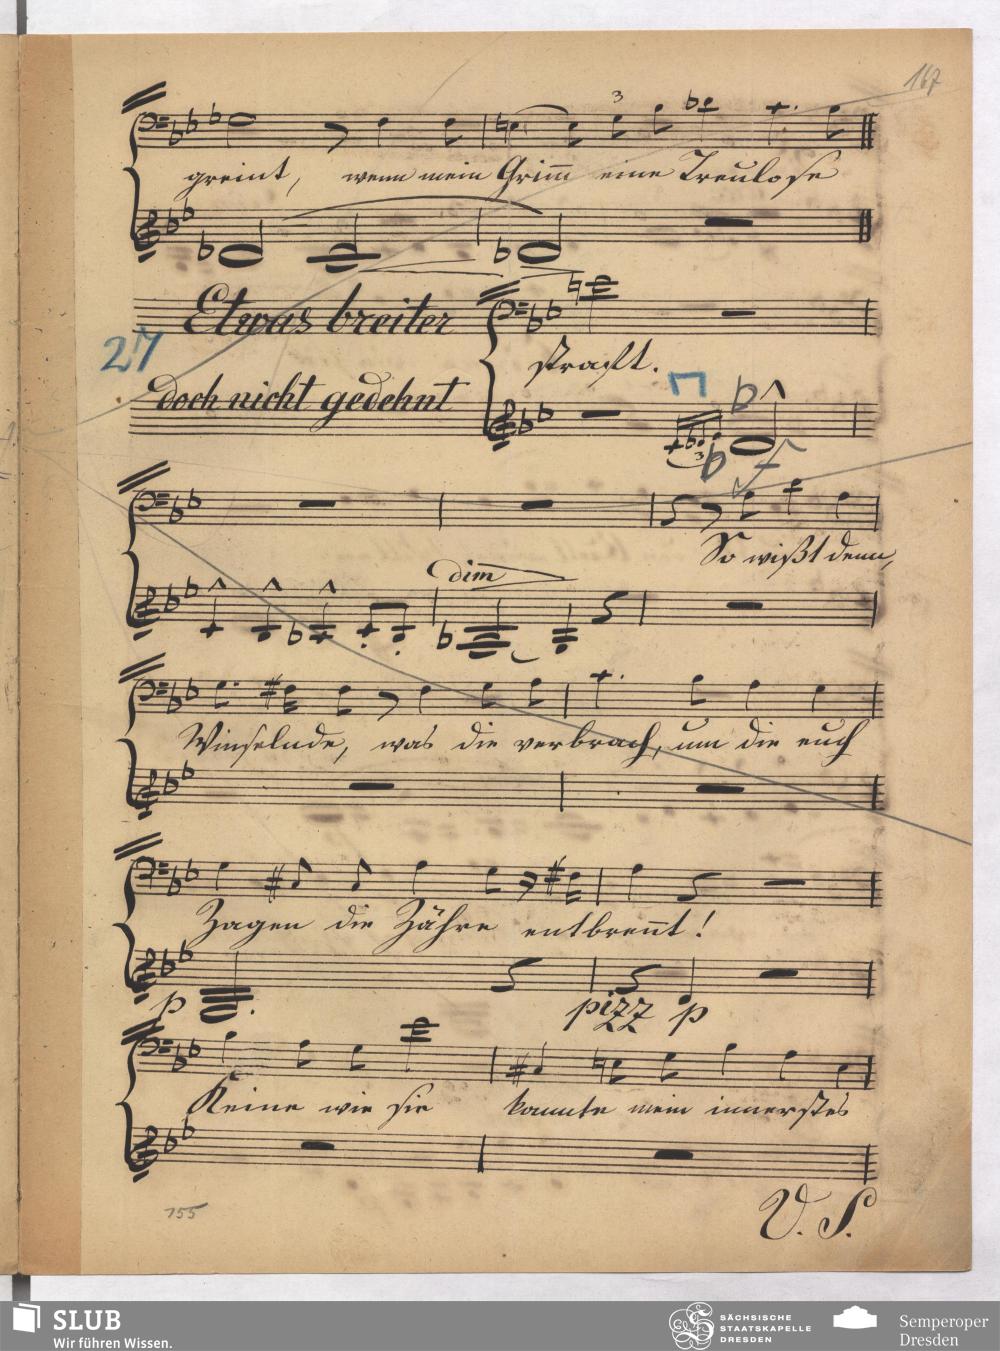 167
3
greint, wenn mein Grim̅ eine Treulose
Etwas breiter
27
straft.
doch nicht gedehnt
3
So wißt denn,
dim
Winselnde, was die verbrach, um die euch
Zagen die Zähre entbren̅t!
p
pizz p
Keine wie sie kannte mein innerstes
V. S.
155
SLUB
Wir führen Wissen.
SÄCHSISCHE
STAATSKAPELLE
DRESDEN
Semperoper
Dresden